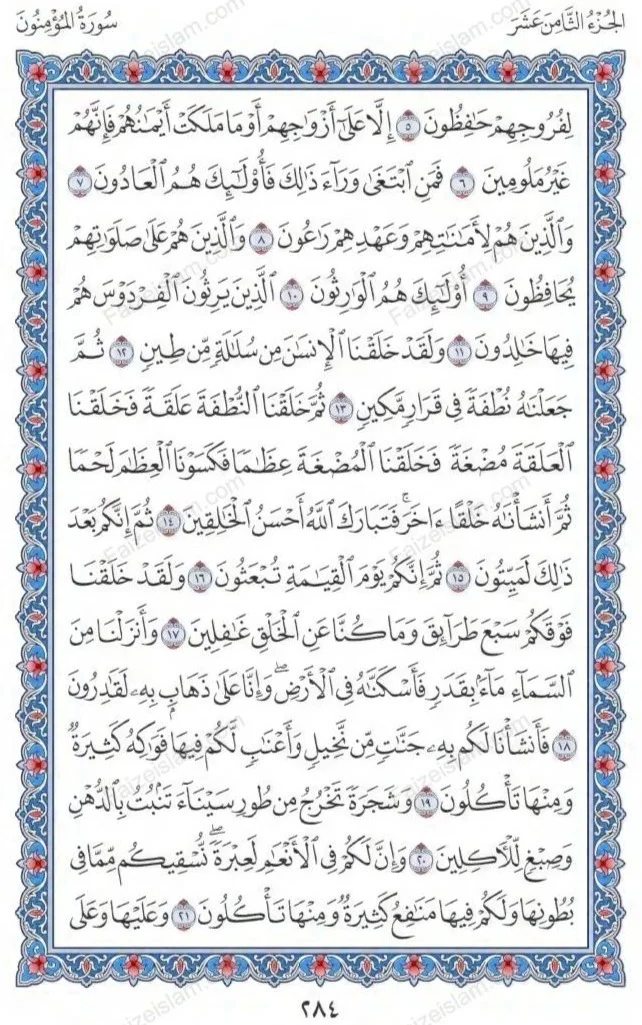 الجُزْءُ الثَّامِنَ عَشَرَ
سُورَةُ المُؤْمِنُونَ
لِفُرُوجِهِمْ حَٰفِظُونَ ٥ إِلَّا عَلَىٰٓ أَزْوَٰجِهِمْ أَوْ مَا مَلَكَتْ أَيْمَٰنُهُمْ فَإِنَّهُمْ
غَيْرُ مَلُومِينَ ٦ فَمَنِ ٱبْتَغَىٰ وَرَآءَ ذَٰلِكَ فَأُو۟لَٰٓئِكَ هُمُ ٱلْعَادُونَ ٧
وَٱلَّذِينَ هُمْ لِأَمَٰنَٰتِهِمْ وَعَهْدِهِمْ رَٰعُونَ ٨ وَٱلَّذِينَ هُمْ عَلَىٰ صَلَوَٰتِهِمْ
يُحَافِظُونَ ٩ أُو۟لَٰٓئِكَ هُمُ ٱلْوَٰرِثُونَ ١٠ ٱلَّذِينَ يَرِثُونَ ٱلْفِرْدَوْسَ هُمْ
فِيهَا خَٰلِدُونَ ١١ وَلَقَدْ خَلَقْنَا ٱلْإِنسَٰنَ مِن سُلَٰلَةٍ مِّن طِينٍ ١٢ ثُمَّ
جَعَلْنَٰهُ نُطْفَةً فِى قَرَارٍ مَّكِينٍ ١٣ ثُمَّ خَلَقْنَا ٱلنُّطْفَةَ عَلَقَةً فَخَلَقْنَا
ٱلْعَلَقَةَ مُضْغَةً فَخَلَقْنَا ٱلْمُضْغَةَ عِظَٰمًا فَكَسَوْنَا ٱلْعِظَٰمَ لَحْمًا
ثُمَّ أَنشَأْنَٰهُ خَلْقًا ءَاخَرَ ۚ فَتَبَارَكَ ٱللَّهُ أَحْسَنُ ٱلْخَٰلِقِينَ ١٤ ثُمَّ إِنَّكُم بَعْدَ
ذَٰلِكَ لَمَيِّتُونَ ١٥ ثُمَّ إِنَّكُمْ يَوْمَ ٱلْقِيَٰمَةِ تُبْعَثُونَ ١٦ وَلَقَدْ خَلَقْنَا
فَوْقَكُمْ سَبْعَ طَرَآئِقَ وَمَا كُنَّا عَنِ ٱلْخَلْقِ غَٰفِلِينَ ١٧ وَأَنزَلْنَا مِنَ
ٱلسَّمَآءِ مَآءًۢ بِقَدَرٍ فَأَسْكَنَّٰهُ فِى ٱلْأَرْضِ ۖ وَإِنَّا عَلَىٰ ذَهَابٍۭ بِهِۦ لَقَٰدِرُونَ
١٨ فَأَنشَأْنَا لَكُم بِهِۦ جَنَّٰتٍ مِّن نَّخِيلٍ وَأَعْنَٰبٍ لَّكُمْ فِيهَا فَوَٰكِهُ كَثِيرَةٌ
وَمِنْهَا تَأْكُلُونَ ١٩ وَشَجَرَةً تَخْرُجُ مِن طُورِ سَيْنَآءَ تَنۢبُتُ بِٱلدُّهْنِ
وَصِبْغٍ لِّلْـَٔاكِلِينَ ٢٠ وَإِنَّ لَكُمْ فِى ٱلْأَنْعَٰمِ لَعِبْرَةً ۖ نُّسْقِيكُم مِّمَّا فِى
بُطُونِهَا وَلَكُمْ فِيهَا مَنَٰفِعُ كَثِيرَةٌ وَمِنْهَا تَأْكُلُونَ ٢١ وَعَلَيْهَا وَعَلَى
٢٨٤
Faizeislam.com